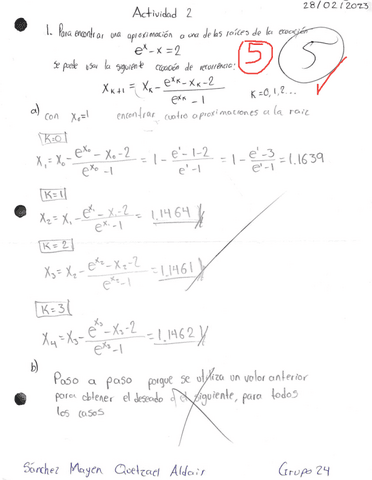 Actividad 2
28/02/2023
1. Para encontrar una aproximación a una de las raíces de la ecuación
e^x - x = 2
se puede usar la siguiente ecuación de recurrencia:
5
5
X_{K+1} = X_K - (e^{X_K} - X_K - 2)/(e^{X_K} - 1) K=0,1,2...
a) con X_0=1 encontrar cuatro aproximaciones a la raíz
K=0
X_1 = X_0 - (e^{X_0} - X_0 - 2)/(e^{X_0} - 1) = 1 - (e^1 - 1 - 2)/(e^1 - 1) = 1 - (e^1 - 3)/(e^1 - 1) = 1.1639
K=1
X_2 = X_1 - (e^{X_1} - X_1 - 2)/(e^{X_1} - 1) = 1.1464
K=2
X_3 = X_2 - (e^{X_2} - X_2 - 2)/(e^{X_2} - 1) = 1.1461
K=3
X_4 = X_3 - (e^{X_3} - X_3 - 2)/(e^{X_3} - 1) = 1.1462
b)
Paso a paso porque se utiliza un valor anterior
para obtener el deseado o el siguiente, para todos
los casos
Sánchez Mayen Quetzael Aldair Grupo 24